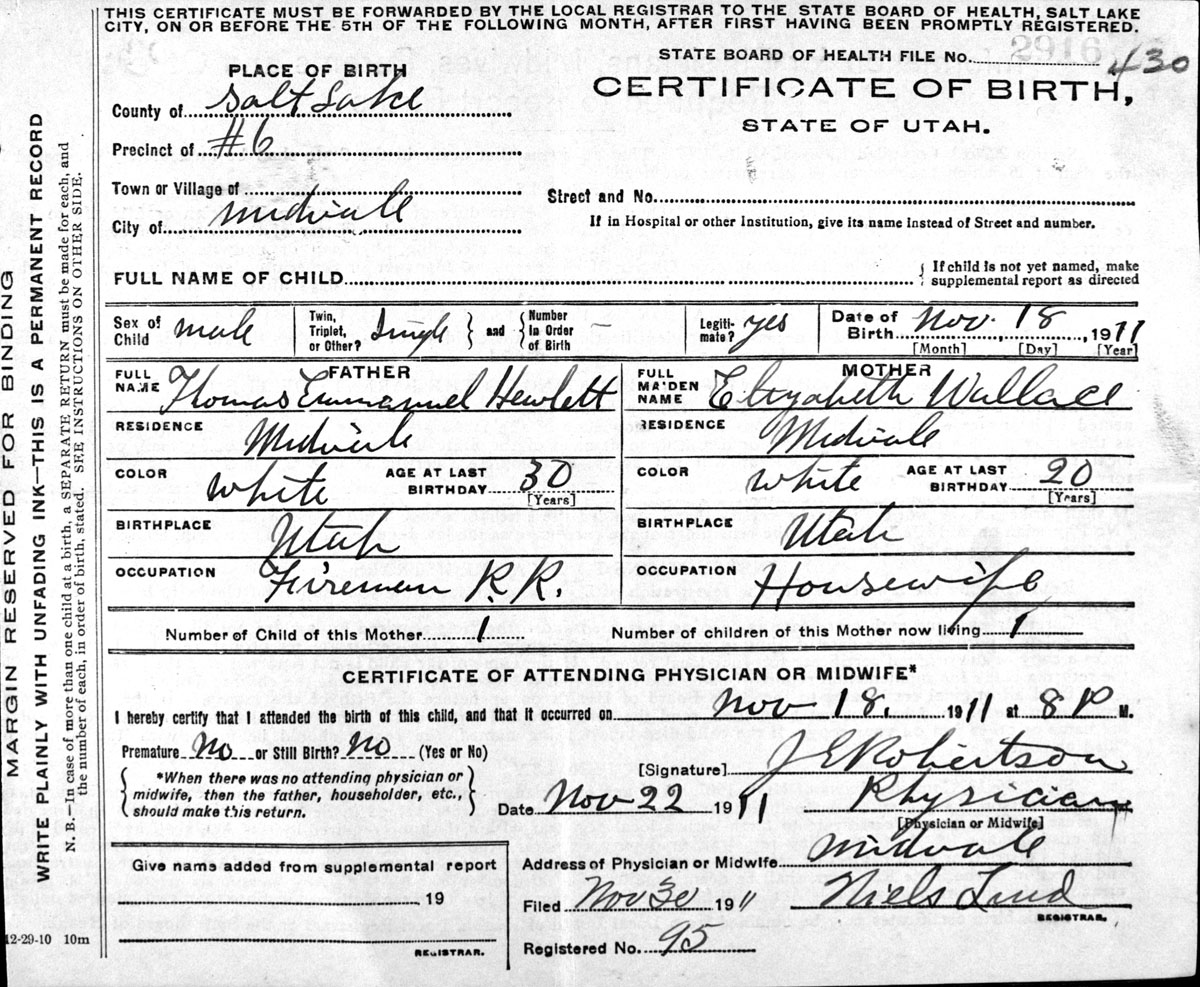 THIS CERTIFICATE MUST BE FORWARDED BY THE LOCAL REGISTRAR TO THE STATE BOARD OF HEALTH, SALT LAKE
CITY, ON OR BEFORE THE 5TH OF THE FOLLOWING MONTH, AFTER FIRST HAVING BEEN PROMPTLY REGISTERED.
MARGIN RESERVED FOR BINDING
WRITE PLAINLY WITH UNFADING INK—THIS IS A PERMANENT RECORD
N. B.—In case of more than one child at a birth, a SEPARATE RETURN must be made for each, and
the number of each, in order of birth, stated. SEE INSTRUCTIONS ON OTHER SIDE.
STATE BOARD OF HEALTH FILE No. 2916 430
PLACE OF BIRTH
CERTIFICATE OF BIRTH,
STATE OF UTAH.
County of Salt Lake
Precinct of #6
Town or Village of
City of Midvale
Street and No.
If in Hospital or other Institution, give its name instead of Street and number.
FULL NAME OF CHILD
{ If child is not yet named, make
supplemental report as directed
Sex of Child male
Twin, Triplet, or Other? Single } and { Number In Order of Birth —
Legiti-mate? yes
Date of Birth Nov. 18, 1911
[Month] [Day] [Year]
FATHER
FULL NAME Thomas Emmanuel Hewlett
RESIDENCE Midvale
COLOR white AGE AT LAST BIRTHDAY 30 [Years]
BIRTHPLACE Utah
OCCUPATION Fireman R.R.
MOTHER
FULL MAIDEN NAME Elizabeth Wallace
RESIDENCE Midvale
COLOR white AGE AT LAST BIRTHDAY 20 [Years]
BIRTHPLACE Utah
OCCUPATION Housewife
Number of Child of this Mother 1 Number of children of this Mother now living 1
CERTIFICATE OF ATTENDING PHYSICIAN OR MIDWIFE*
I hereby certify that I attended the birth of this child, and that it occurred on Nov 18. 1911 at 8 P M.
Premature No or Still Birth? No (Yes or No)
{ *When there was no attending physician or
midwife, then the father, householder, etc.,
should make this return. }
[Signature] J E Robertson
Date Nov 22 1911 Physician
[Physician or Midwife]
Give name added from supplemental report
19
REGISTRAR.
Address of Physician or Midwife Midvale
Filed Nov 30 1911 Niels Lind
REGISTRAR.
Registered No. 95
12-29-10 10m